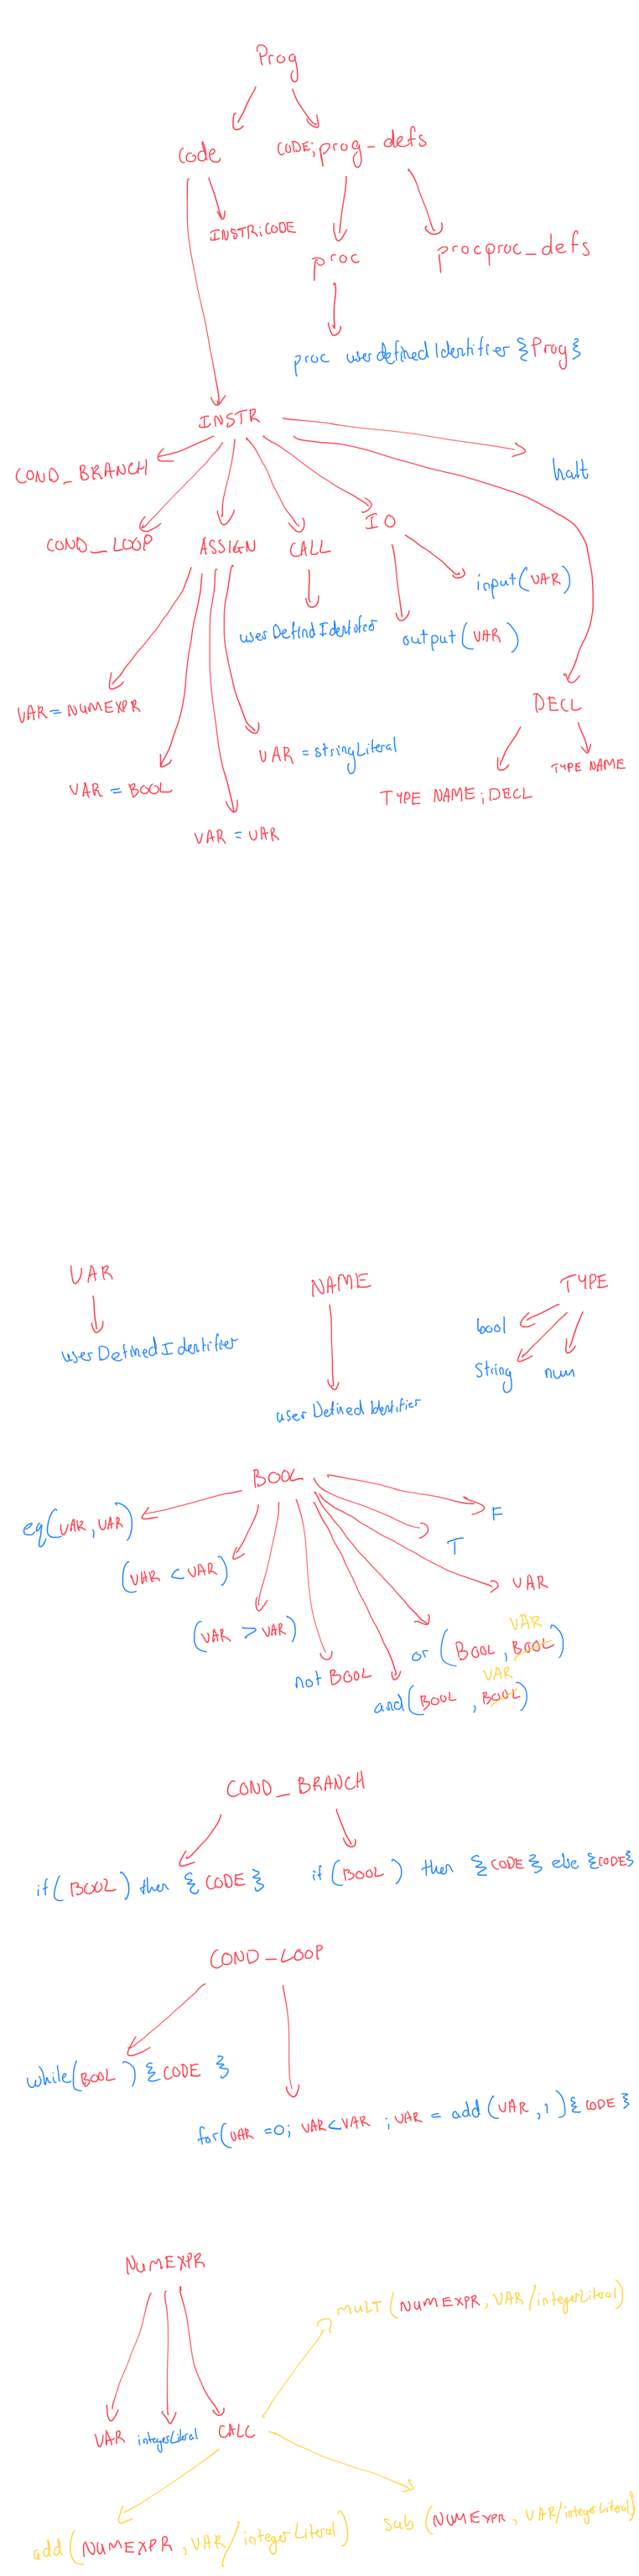 Prog
Code CODE; prog_defs
INSTR; CODE
proc procproc_defs
proc userdefinedIdentifier {Prog}
INSTR
COND_BRANCH halt
COND_LOOP ASSIGN CALL IO
input(VAR)
userDefindIdentifier output(VAR)
VAR = NUMEXPR DECL
VAR = stringLiteral
VAR = BOOL TYPE NAME; DECL TYPE NAME
VAR = VAR
VAR NAME TYPE
userDefinedIdentifier bool
String num
userDefinedIdentifier
BOOL
eq(VAR, VAR) F
T
(VAR < VAR) VAR
(VAR > VAR) VAR
or (BOOL, BOOL)
not BOOL VAR
and(BOOL, BOOL)
COND_BRANCH
if(BOOL) then {CODE} if(BOOL) then {CODE} else {CODE}
COND_LOOP
while(BOOL) {CODE}
for(VAR =0; VAR<VAR ; VAR = add(VAR, 1){CODE}
NUMEXPR
MULT (NUMEXPR, VAR/integerLiteral)
VAR integerLiteral CALC
add(NUMEXPR, VAR/integerLiteral) sub (NUMEXPR, VAR/integerLiteral)